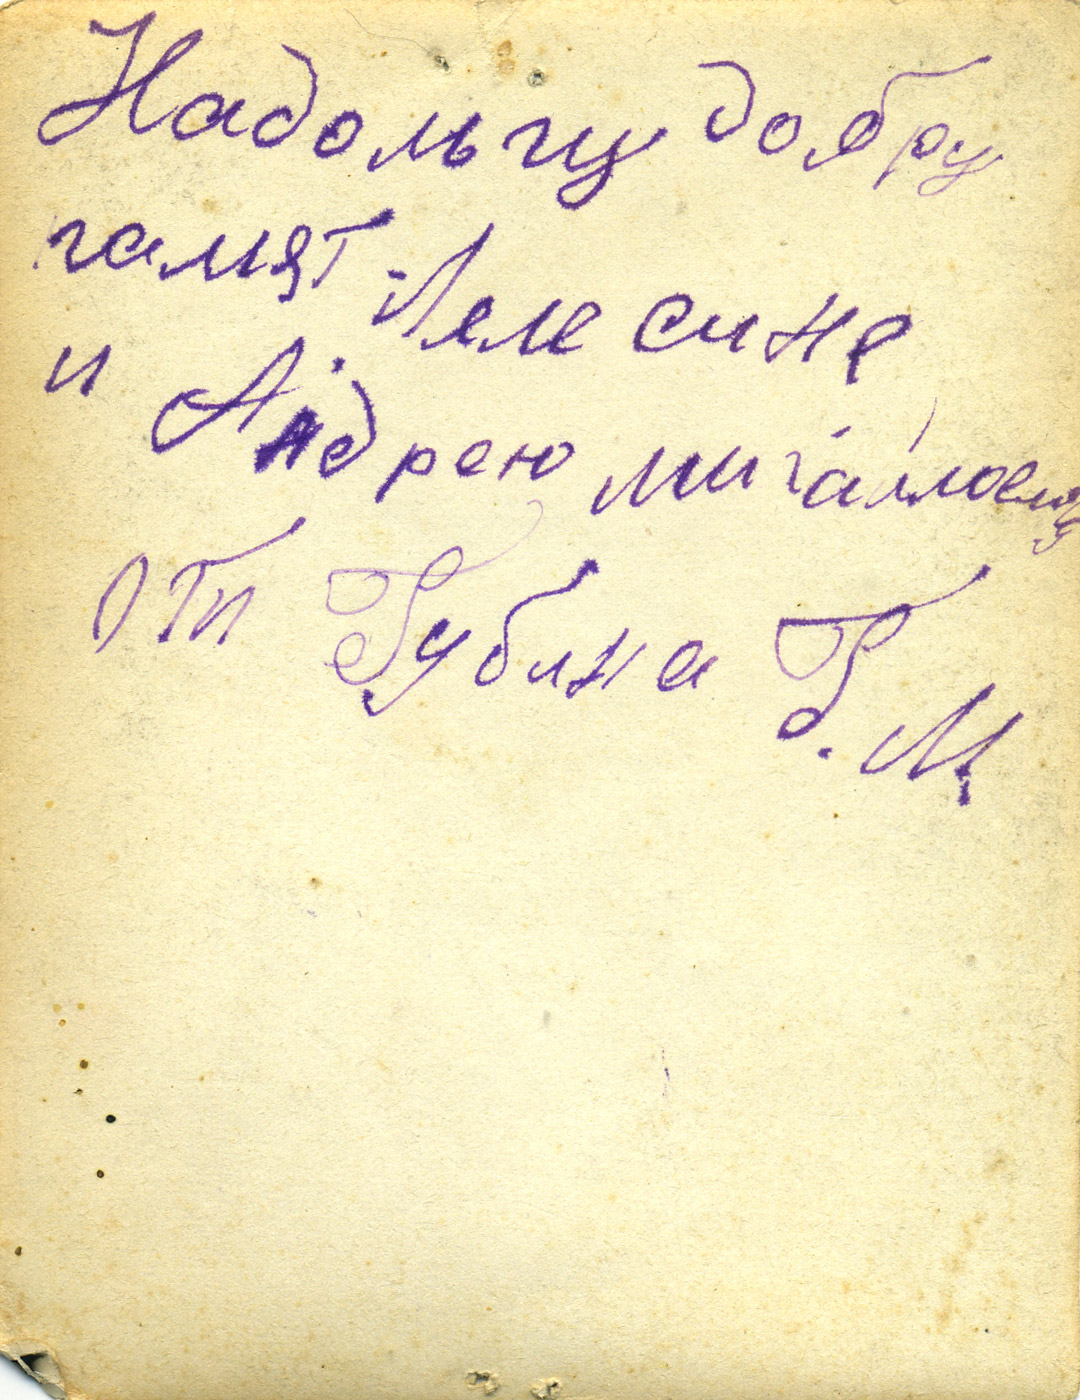 Надольгу добру
памят Леле сине
и Андрею михайлович
оти Губина Г.М